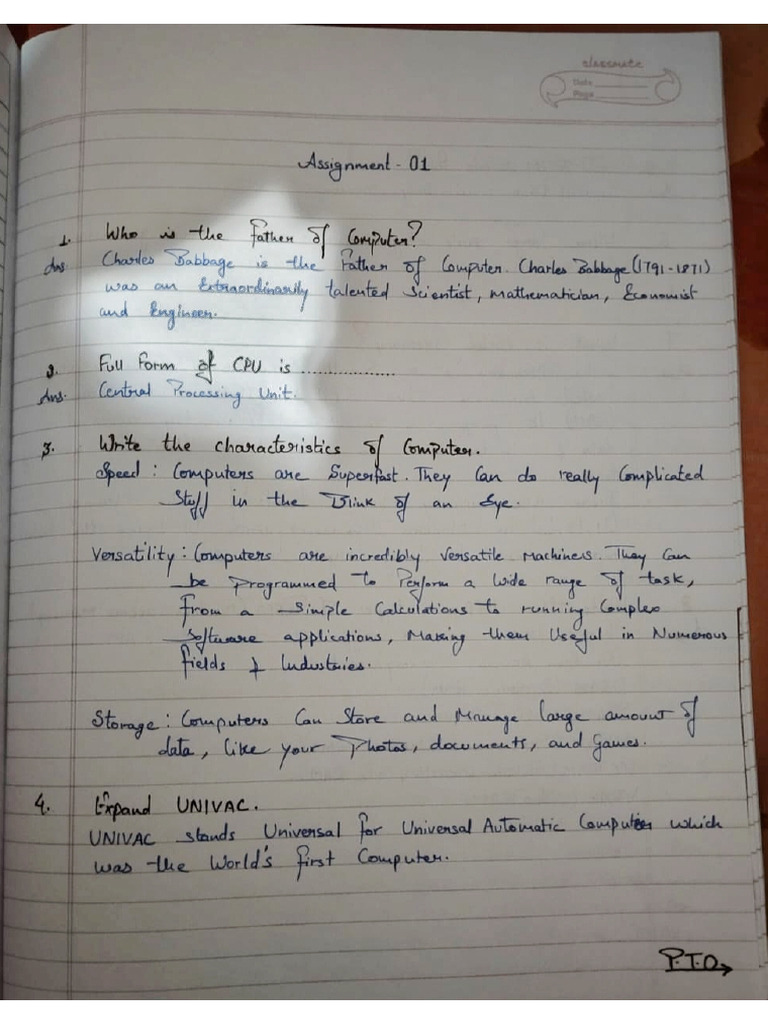 classmate
Date
Page
Assignment - 01
1. Who is the Father of Computer?
Ans Charles Babbage is the Father of Computer. Charles Babbage (1791-1871)
was an Extraordinarily talented Scientist, Mathematician, Economist
and Engineer.
2. Full Form of CPU is ..................
Ans. Central Processing Unit.
3. Write the characteristics of Computer.
Speed : Computers are Superfast. They Can do really Complicated
Stuff in the Blink of an Eye.
Versatility : Computers are incredibly Versatile Machines. They Can
be Programmed to Perform a Wide range of task,
From a Simple Calculations to running Complex
Software applications, Making them Useful in Numerous
fields & Industries.
Storage : Computers Can Store and Manage large amount of
data, like your Photos, documents, and Games.
4. Expand UNIVAC.
UNIVAC stands Universal for Universal Automatic Computer which
was the World's first Computer.
P.T.O→